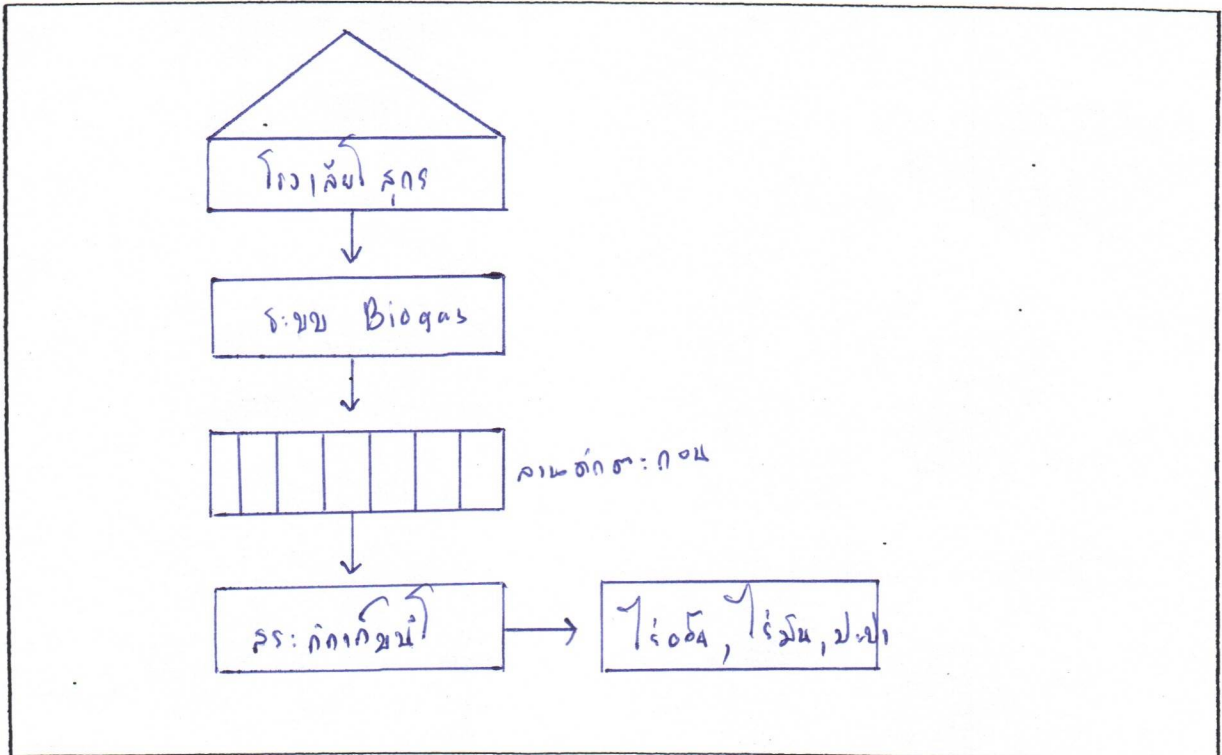 โรงเลี้ยงสุกร
ระบบ Biogas
ลานตกตะกอน
สระกักเก็บน้ำ
ไร่อ้อย, ไร่มัน,